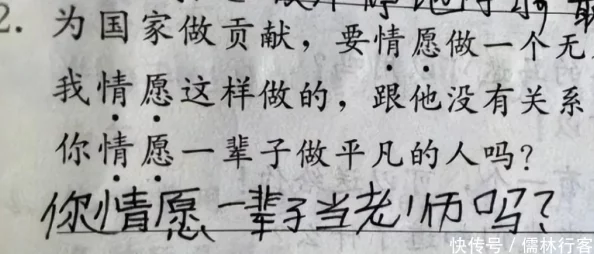 2. 为国家做贡献，要情愿做一个无
我情愿这样做的，跟他没有关系
你情愿一辈子做平凡的人吗？
你情愿一辈子当老师吗？
快传号 / 儒林行客